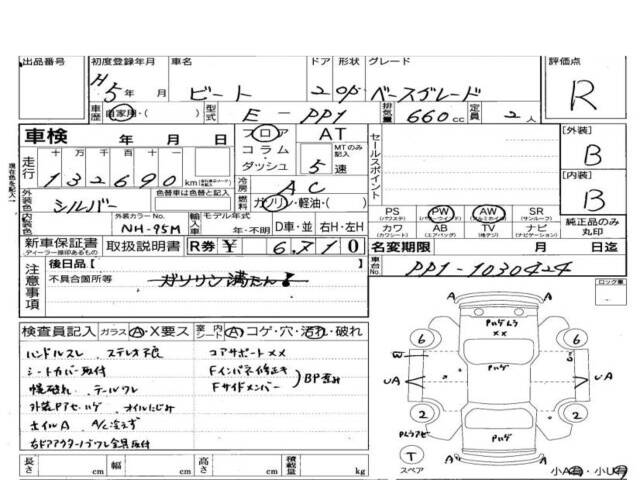 出品番号 初度登録年月 車名 ドア 形状 グレード 評価点
H5年 月 ビート 2 OP ベースグレード R
車歴 自家用・( ) 型式 E-PP1 排気量 660cc 定員 2人
車検 年 月 日 フロア AT セールスポイント [外装]
コラム MTのみ記入 B
走行 十万 万 千 百 十 一 ダッシュ 5速
132690km
現在色を記入→ 冷房 AC [内装]
外装色 シルバー 色替車は色替と記入 燃料 ガソリン・軽油・( ) B
内装色 外装カラーNo. NH-95M 輸入車 モデル年式 年・不明 D車・並 右H・左H
PS (パワステ) PW (パワーウインド) AW (アルミホイル) SR (サンルーフ) 純正品のみ丸印
カワ (カワシート) AB (エアバッグ) TV (地デジ) ナビ (ナビゲーション)
新車保証書 ディーラー捺印あるもの 取扱説明書 R券 ¥ 6,710 名変期限 月 日迄
注意事項 後日品[ ] 車台No. PP1-1030424
不具合箇所等 ガソリン満たん
ロック車
検査員記入 ガラス A・X要ス 室内シート A・コゲ・穴・汚れ・破れ
ハンドルスレ ステレオ不良 コアサポートXX
シートカバー取付 Fインパネ修正キ
幌破れ テールワレ Fサイドメンバー BP歪み
外装Pアセハゲ オイルにじみ
ホイルA A/C冷えず
右ドアアウターノブワレ金具取付
A A
Pハゲムラ
XX
6 6
W
UA UA
2 2
Pハゲ
A A
T スペア
小A・小U
長さ cm 幅 cm 高さ cm 積載量 kg